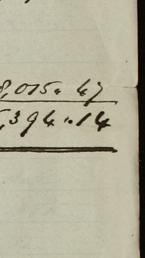 8,015. 47
5,394.14